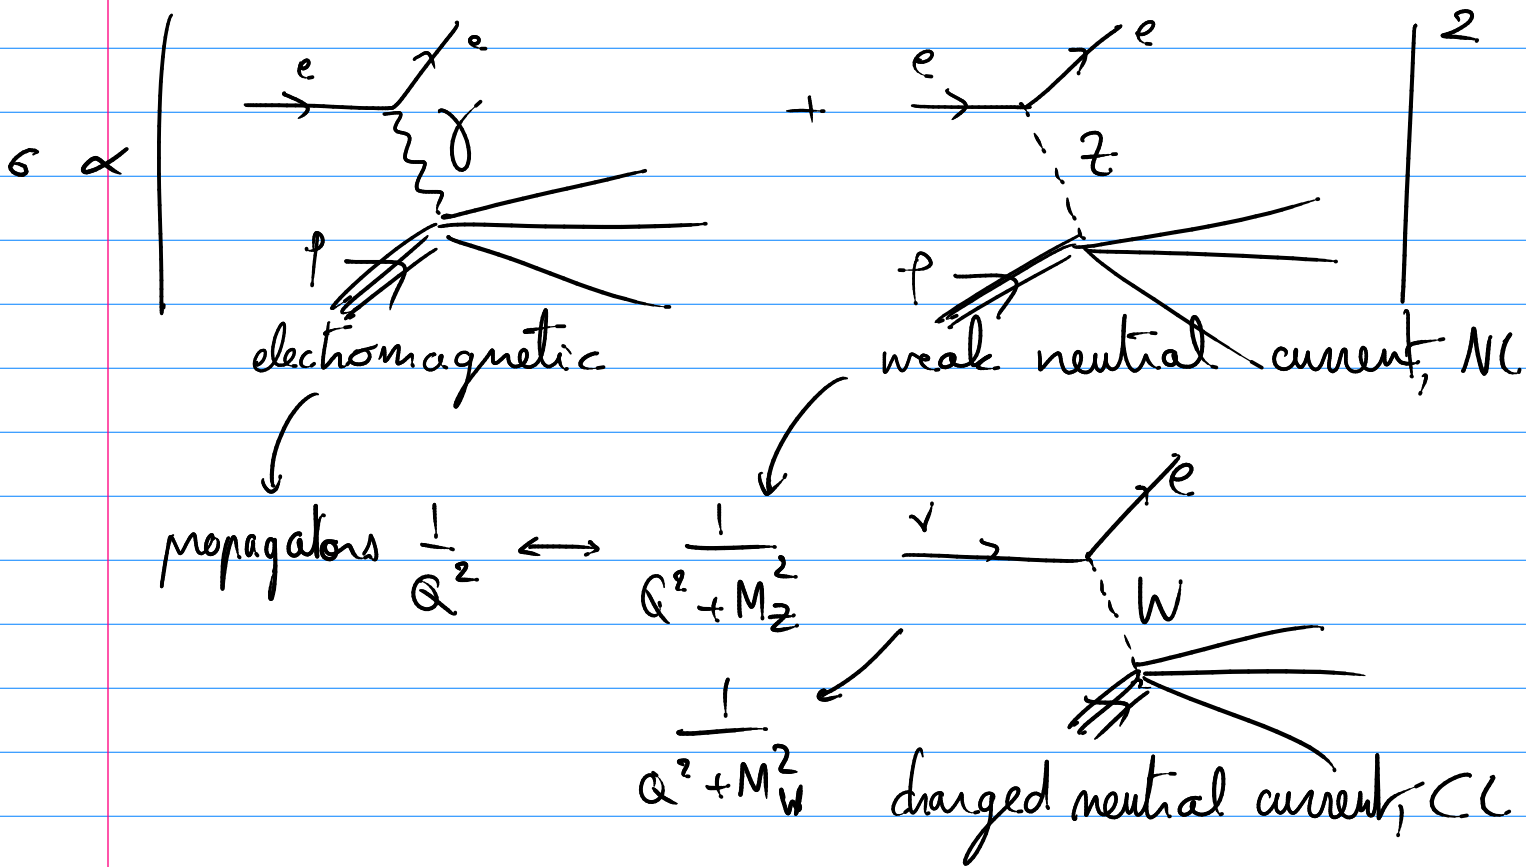 σ ∝ | e e γ p + e e Z p |²
electromagnetic weak neutral current, NC
propagators 1/Q² ↔ 1/(Q² + M_Z²)
ν e W
1/(Q² + M_W²)
charged neutral current, CC